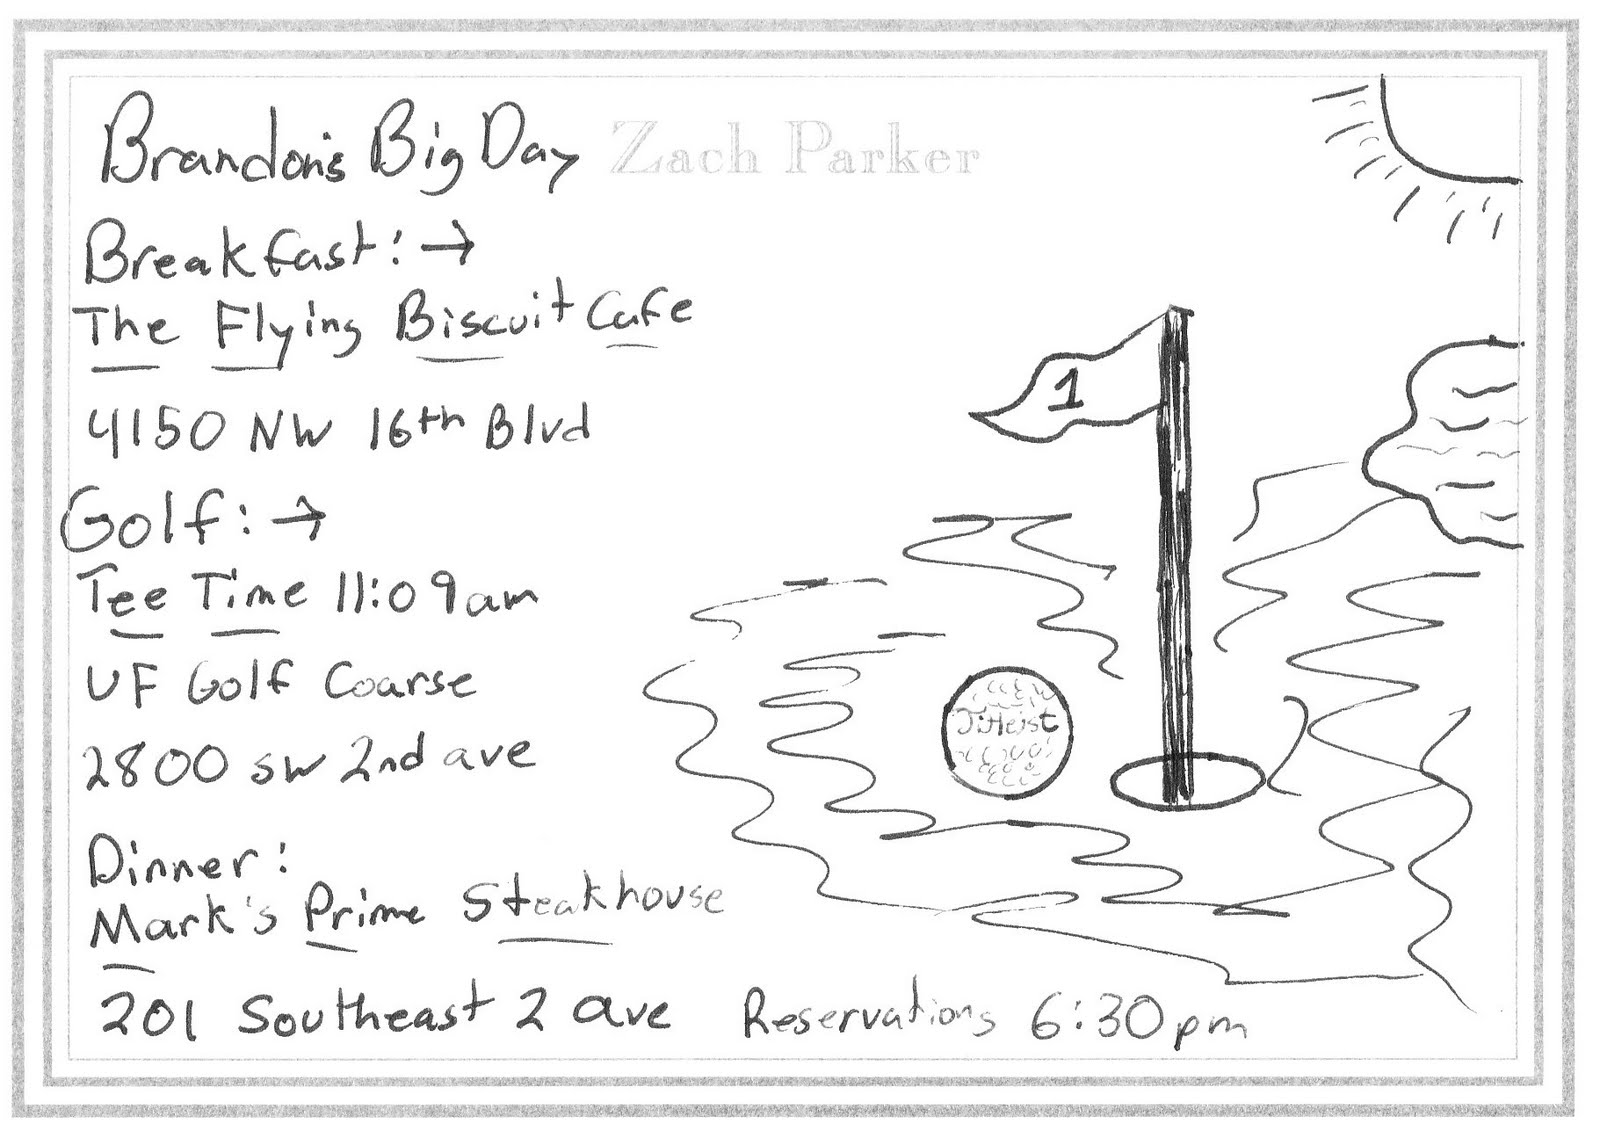 Brandon's Big Day Zach Parker
Breakfast: →
The Flying Biscuit Cafe
4150 NW 16th Blvd
Golf: →
Tee Time 11:09am
UF Golf Coarse
2800 SW 2nd ave
Dinner:
Mark's Prime Steakhouse
201 Southeast 2 ave Reservations 6:30pm
1
Titleist